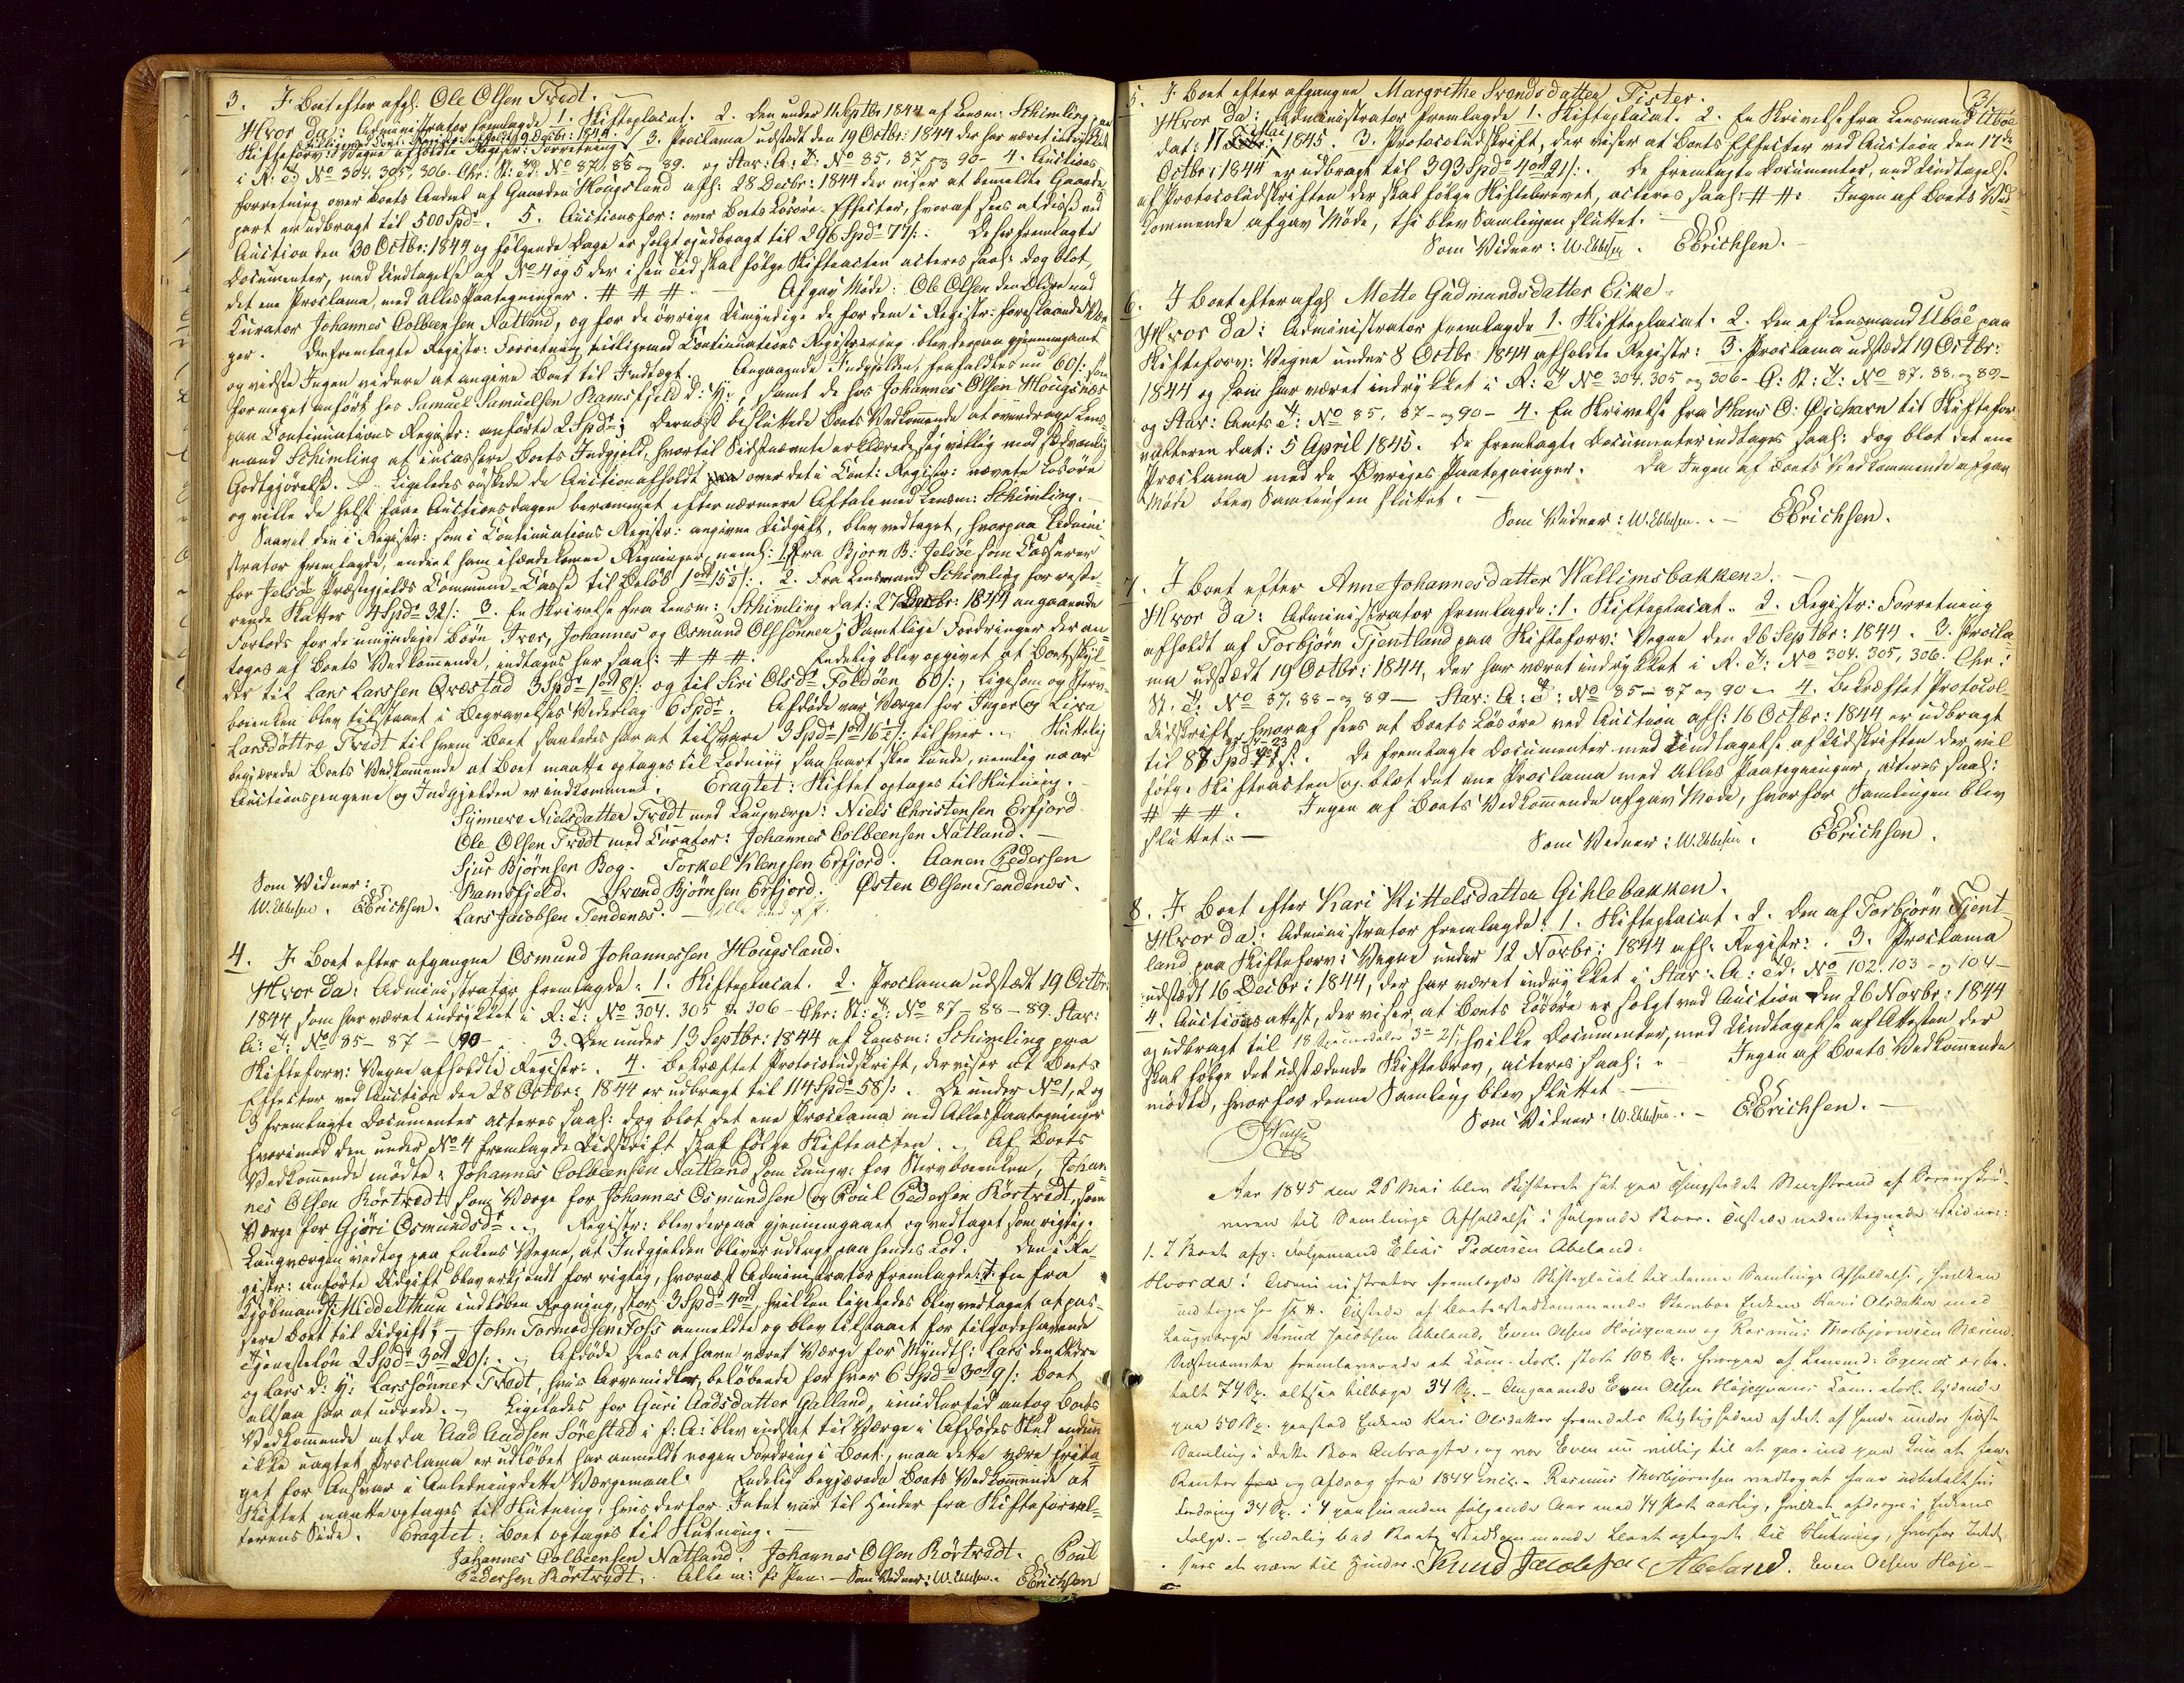 3. I Boet efter afgl: Ole Olsen Trodt. —
Hvor da: Administrator fremlagde 1. Skifteplacat. 2. Den under 11 Septbr 1844 af Lensm: Schimling paa
Skifteforv: Vegne afholdte Registr: Forretning 3. Proclama udstædt den 19 Octbr: 1844 der har været indrykket
i R: T: No 304. 305. 306. Chr: St: T: No 87. 88 og 89. og Stav: A: T: No 85. 87 og 90 - 4. Auctions
forretning over Boets Andeel af Gaarden Hougsland afh: 28 Decbr: 1844 der viser at bemeldte Gaarde
part er udbragt til 500 Spdr. 5. Auctionsfor: over Boets Løsøre-Effecter, hvoraf sees at disse ved
Auction den 30 Octbr: 1844 og følgende Dage er solgt og udbragt til 296 Spdr 77 s:. De her fremlagte
Documenter, med Undtagelse af No 4 og 5 der i sin Tid skal følge Skifteacten acteres saal: dog blot,
det ene Proclama, med Alles Paategninger. # # #. — Afgav Møde: Ole Olsen den Ældre med
Curator Johannes Colbeensen Natland, og for de øvrige Umyndige de for dem i Registr: foreslaaede Vær-
ger. Den fremlagte Registr: Forretning tilligemed Continuations Registrering blev derpaa gjennemgaaet
og vidste Ingen videre at angive Boet til Indtægt. Angaaende Indgjelden, frafaldtes nu 60 s: som
formeget anført hos Samuel Samuelsen Ramsfjeld d: y:, samt de hos Johannes Olsen Hougsnæs
paa Continuations Registr: anførte 2 Spdr; Dernæst besluttede Boets Vedkommende at overdrage Lens-
mand Schimling at incassere Boets Indgjeld, hvortil Sidstnævnte erklærede sig villig mod sædvanlig
Godtgjørelse. — Ligeledes ønskede de Auction afholdt over det i Cont: Registr: nævnte Løsøre
og ville de helst have Auctionsdagen berammet efter nærmere Aftale med Lensm: Schimling. —
Saavel den i Registr: som i Continuations Registr: angivne Udgift, blev vedtaget, hvorpaa Admini
strator fremlagde, endeel ham ihændekomne Regninger, neml: 1. Fra Bjørn B: Jelsøe som Casserer
for Jelsøe Præstegjelds Commune-Casse til Beløb 1 ort 15½ s:. 2. Fra Lensmand Schimling for reste-
rende Skatter 4 Spdr 32 s: 3. En Skrivelse fra Lensm: Schimling dat: 27 Decbr: 1844 angaaende
Forlods for de umyndige Børn Iver, Johannes og Osmund Olssønner; Samtlige Fordringer der an-
toges af Boets Vedkommende, indtages her saal: # # #. Endelig blev opgivet at Boet skyl-
der til Lars Larssen Qvæstad 3 Spdr 1 ort 8 s: og til Siri Olsdr Foldøen 60 s:, ligesom og Sterv-
boenken blev tilstaaet i Begravelses Vederlag 6 Spdr. Afdøde var Værge for Inger og Liva
Larsdøttre Trødt til hvem Boet saaledes har at tilsvare 3 Spdr 1 ort 16½ s: til hver. — Skiftelig
begjærede Boets Vedkommende at Boet maatte optages til Lodning saasnart skee kunde, nemlig naar
Auctionspengene og Indgjelden er indkommen. Eragtet: Skiftet optages til Slutning.
Synneve Nielsdatter Trødt med Laugværge: Niels Christensen Erfjord
Ole Olsen Trødt med Curator: Johannes Colbeensen Natland. —
Sjur Bjørnsen Bog. Torkel Klengsen Erfjord. Aanen Pedersen
Ramsfjeld. Svend Bjørnsen Erfjord. Østen Olsen Tendenæs.
Lars Jacobsen Tendenæs. —
Som Vidner:
W. Ebbesen. EErichsen.
4. I Boet efter afgangne Osmund Johannessen Hougsland.
Hvor da: Administrator fremlagde: 1. Skifteplacat. 2. Proclama udstædt 19 Octbr:
1844 som har været indrykket i R: T: No 304. 305 & 306 - Chr: St: T: No 87 - 88 - 89. Stav:
A: T: No 85 - 87 - 90 - . 3. Den under 13 Septbr: 1844 af Lensm: Schimling paa
Skifteforv: Vegne afholdte Registr:. 4. Bekræftet Protocoludskrift, der viser at Boets
Effecter ved Auction den 28 Octbr: 1844 er udbragt til 114 Spdr 58 s:. De under No 1, 2 og
3 fremlagte Documenter acteres saal: dog blot det ene Proclama med Alles Paategninger
hvorimod den under No 4 fremlagde Udskrift skal følge Skifteacten. — Af Boets
Vedkommende mødte: Johannes Colbeensen Natland som Laugv: for Stervboenken, Johan-
nes Olsen Kørtvedt som Værge for Johannes Osmundsen og Poul Pedersen Kørtvedt, som
Værge for Gjøri Osmundsdr. — Registr: blev derpaa gjennemgaaet og vedtaget som rigtig.
Laugværgen vedtog paa Enkens Vegne, at Indgjelden bliver udlagt paa hendes Lod. Den i Re-
gistr: anførte Udgift blev erkjendt for rigtig, hvornæst Administrator fremlagde: 5. En fra
Kjøbmand Middelthun indkøben Regning, stor 3 Spdr 4 ort, hvilken ligeledes blev vedtaget at pas-
sere Boet til Udgift; — John Tormodsen Foss anmeldte og blev tilstaaet for tilgodehavende
Tjenesteløn 2 Spdr 3 ort 20 s:. — Afdøde sees at have været Værge for Myndth: Lars den Ældre
og Lars d: y: Larssønner Trødt, hvis Arvemidler, beløbende for hver 6 Spdr 3 ort 9 s: Boet
altsaa har at udrede. — Ligeledes for Guri Aadsdatter Galland, imidlertid antog Boets
Vedkommende at da Aad Aadsen Sørestad i f: A: blev indsat til Værge i Afdødes Sted endnu
ikke uagtet Proclama er udløbet har anmeldt nogen Fordring i Boet, maa dette være frita-
get for Ansvar i Anledning dette Værgemaal. Endelig begjærede Boets Vedkommende at
Skiftet maatte optages til Slutning, hvis derfor Intet var til Hinder fra Skifteforval-
terens Side. Eragtet: Boet optages til Slutning. —
Johannes Colbeensen Natland. Johannes Olsen Kørtvedt. Poul
Pedersen Kørtvedt. Alle m: f: Pen: — Som Vidner: W. Ebbesen. EErichsen
5. I Boet efter afgangne Margrethe Svendsdatter Tister.
Hvor da: Administrator fremlagde 1. Skifteplacat. 2. En Skrivelse fra Lensmand Ubøe
dat: 17 1845. 3. Protocoludskrift, der viser at Boets Effecter ved Auction den 17de
Octbr: 1844 er udbragt til 393 Spdr 4 ort 21 s:. De fremlagte Documenter, med Undtagelse
af Protocoludskriften der skal følge Skiftebrevet, acteres saal: # #. Ingen af Boets Ved
kommende afgav Møde, thi blev Samlingen sluttet. —
Som Vidner: W. Ebbesen. EErichsen. —
6. I Boet efter afgl Mette Gudmundsdatter Eike.
Hvor da: Administrator fremlagde 1. Skifteplacat. 2. Den af Lensmand Ubøe paa
Skifteforv: Vegne under 8 Octbr 1844 afholdte Registr: 3. Proclama udstædt 19 Octbr:
1844 og som har været indrykket i R: T No 304. 305 og 306 - C: St: T: No 87. 88. og 89 -
og Stav: Amts T: No 85. 87 - og 90 - 4. En Skrivelse fra Hans O: Øiehavn til Skiftefor
valteren dat: 5 April 1845. De fremlagte Documenter indtages saal: dog blot det ene
Proclama med de Øvriges Paategninger. Da Ingen af Boets Vedkommende afgav
Møde blev Samlingen sluttet. —
Som Vidner: W. Ebbesen. — EErichsen.
7. I Boet efter Anne Johannesdatter Wallimsbakkene. —
Hvor da: Administrator fremlagde: 1. Skifteplacat. 2. Registr: Forretning
afholdt af Torbjørn Tjentland paa Skifteforv: Vegne den 26 Septbr: 1844. 3. Procla-
ma udstædt 19 Octbr: 1844, der har været indrykket i R. T: No 304. 305, 306. Chr:
St. T: No 87. 88 - og 89 — Stav: A: T: No 85 - 87 og 90 - 4. Bekræftet Protocol-
Udskrift hvoraf sees at Boets Løsøre ved Auction afh: 16 Octbr: 1844 er udbragt
til 87 Spd. De fremlagte Documenter med Undtagelse af Udskriften der vil
følge Skifteacten og blot det ene Proclama med Alles Paategninger, acteres saal:
# # #. Ingen af Boets Vedkommende afgav Møde, hvorfor Samlingen blev
sluttet. —
Som Vidner: W. Ebbesen. EErichsen.
8. I Boet efter Kari Kittelsdatter Gihlebakken.
Hvor da: Administrator fremlagde: 1. Skifteplacat. 2. Den af Torbjørn Tjent-
land paa Skifteforv: Vegne under 12 Novbr: 1844 afh: Registr:. 3. Proclama
udstædt 16 Decbr: 1844, der har været indrykket i Stav: A: T: No 102. 103 - og 104 -
4. Auctionsattest, der viser, at Boets Løsøre er solgt ved Auction den 26 Novbr: 1844
og udbragt til 18 Speciedaler 3 - 21 s; hvilke Documenter, med Undtagelse af Attesten der
skal følge det udstædende Skiftebrev, acteres saal: Ingen af Boets Vedkommende
mødte, hvorfor denne Samling blev sluttet —
Som Vidner: W. Ebbesen. — EErichsen. —
Aar 1845 den 26 Mai blev Skifteret sat paa Thingstedet Neerstrand af Sorenskri-
veren til Samlings Afholdelse i følgende Boer. Tilstede nedentegnede Vidner:
1. I Boet afg: Folgemand Elias Pedersen Abeland.
Hvor da: Administrator fremlagde Skifteplacat til denne Samlings Afholdelse, hvilken
indtages her sk #. Tilstede af Boets Vedkommende Stervboe Enken Kari Olsdatter med
Laugværge Knud Jacobsen Abeland, Even Olsen Høiegvam og Rasmus Thorbjørnsen Nærim.
Sidstnævnte fremleverede et Laan. stort 108 Sp. hvorpaa af Lensmd: Egenæs er be-
talt 74 Sp. altsaa tilbage 34 Sp. - Angaaende Even Olsen Høiegvams lydende
paa 50 Sp. paastod Enken Kari Olsdatter fremdeles Rigtigheden af det af hende under sidste
Samling i dette Boe Anbragte, og var Even nu villig til at gaae ind paa kun at faae
Renter og Afdrag fra 1844 incl. - Rasmus Thorbjørnsen vedtoges at faae udbetalt sin
Fordring 34 Sp. i 4 paa hinanden følgende Aar med 1/4 Part aarlig, hvilket afdrages i Enkens
Følge. - Endelig bad Boets Vedkommende Boet optaget til Slutning, hvorfor Intet
sees at være til Hinder. Knud Jacobsen Abeland. Even Olsen Høie-